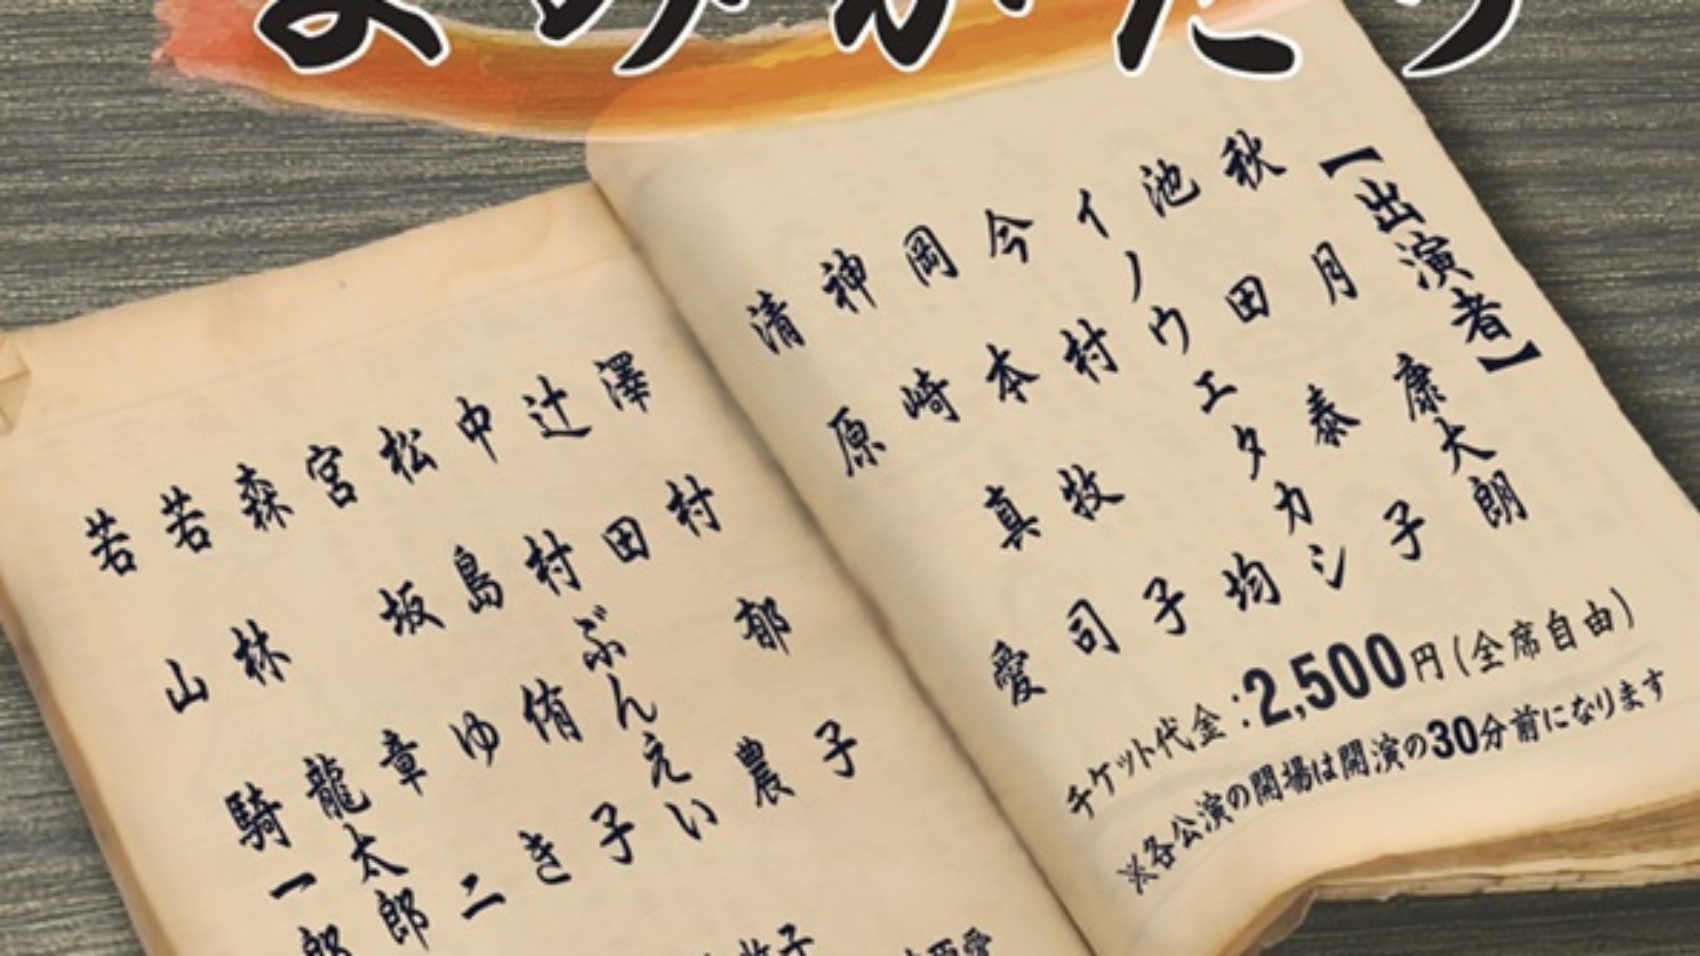 よみがたり
【出演者】
秋月康大朗
池田泰子
イノウエタカシ
今村均
岡本牧子
神崎真司
清原愛
チケット代金:2,500円(全席自由)
※各公演の開場は開演の30分前になります
澤村郁子
辻田農
中村ぶんえい
松島侑子
宮坂ゆき
森章二
若林龍太郎
若山騎一郎